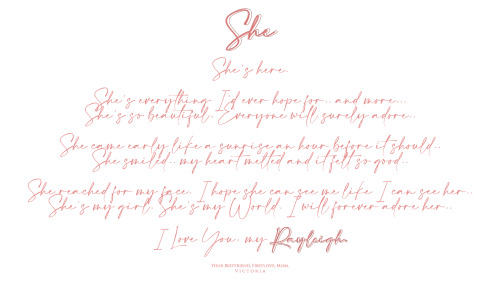 She
She's here.
She's everything I'd ever hope for.. and more...
She's so beautiful. Everyone will surely adore..
She came early like a sunrise an hour before it should..
She smiled.. my heart melted and it felt so good..
She reached for my face. I hope she can see me like I can see her..
She's my girl. She's my World. I will forever adore her..
I Love You, my Rayleigh.
Your Bestfriend, First Love, Mom,
Victoria